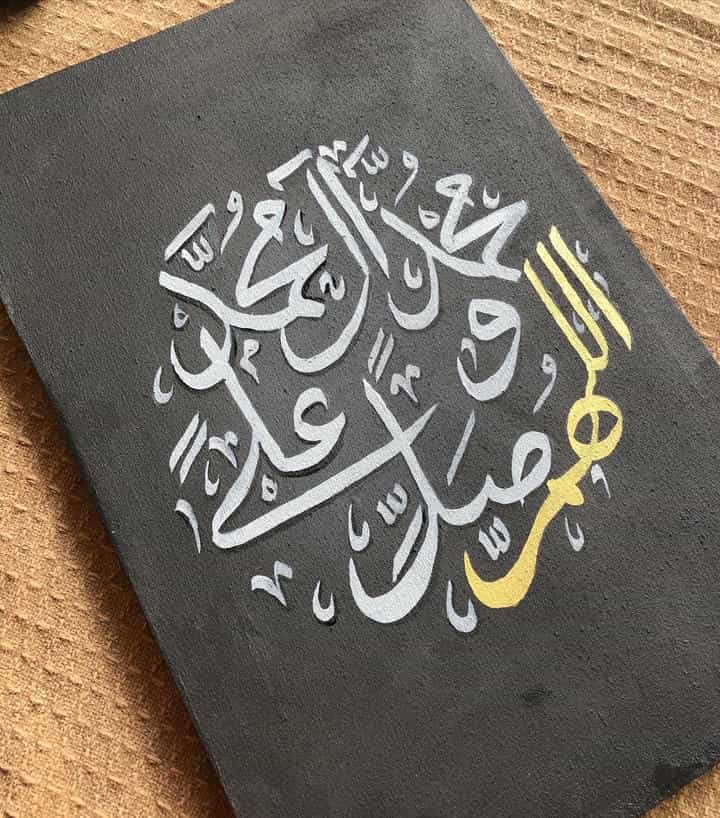 اللهم صَلِّ على محمد وآل محمد